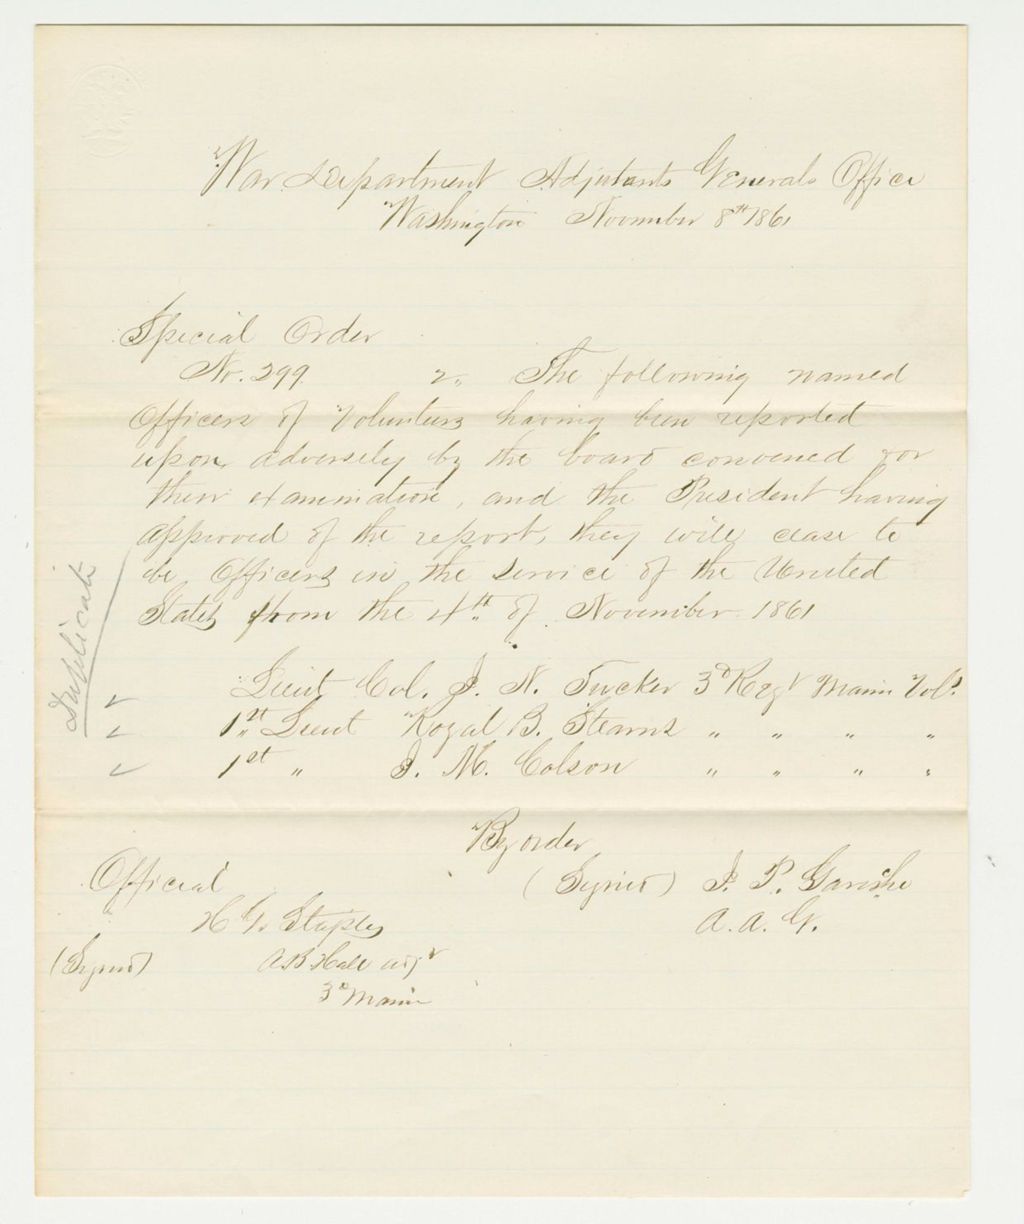 War Department Adjutants Generals Office
Washington November 8th 1861
Special Order
No. 299. 2,, The following named
Officers of Volunteers having been reported
upon adversely by the board convened for
their examination, and the President having
approved of the report, they will cease to
be Officers in the service of the United
States from the 4th of November 1861
Duplicate
Lieut Col. I. N. Tucker 3d Regt Maine Vols
1st Lieut Royal B. Stearns " " " "
1st " I. M. Colson " " " "
By order
Official (Signed) J. P. Garesche
H G. Staples A. A. G.
(Signed) A B Hall adjt
3d Maine